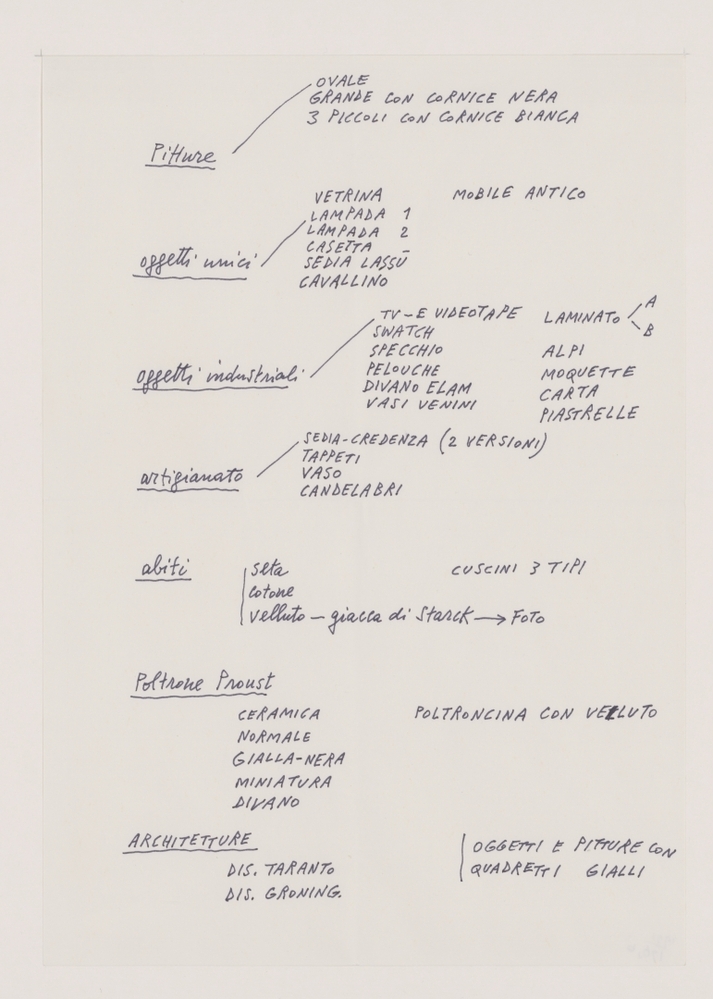 Pitture
OVALE
GRANDE CON CORNICE NERA
3 PICCOLI CON CORNICE BIANCA
oggetti unici
VETRINA
LAMPADA 1
LAMPADA 2
CASETTA
SEDIA LASSÙ
CAVALLINO
MOBILE ANTICO
oggetti industriali
TV-E VIDEOTAPE
SWATCH
SPECCHIO
PELOUCHE
DIVANO ELAM
VASI VENINI
LAMINATO A
B
ALPI
MOQUETTE
CARTA
PIASTRELLE
artigianato
SEDIA-CREDENZA (2 VERSIONI)
TAPPETI
VASO
CANDELABRI
abiti
seta
cotone
velluto – giacca di Starck → FOTO
CUSCINI 3 TIPI
Poltrone Proust
CERAMICA
NORMALE
GIALLA-NERA
MINIATURA
DIVANO
POLTRONCINA CON VELLUTO
ARCHITETTURE
DIS. TARANTO
DIS. GRONING.
OGGETTI E PITTURE CON
QUADRETTI GIALLI